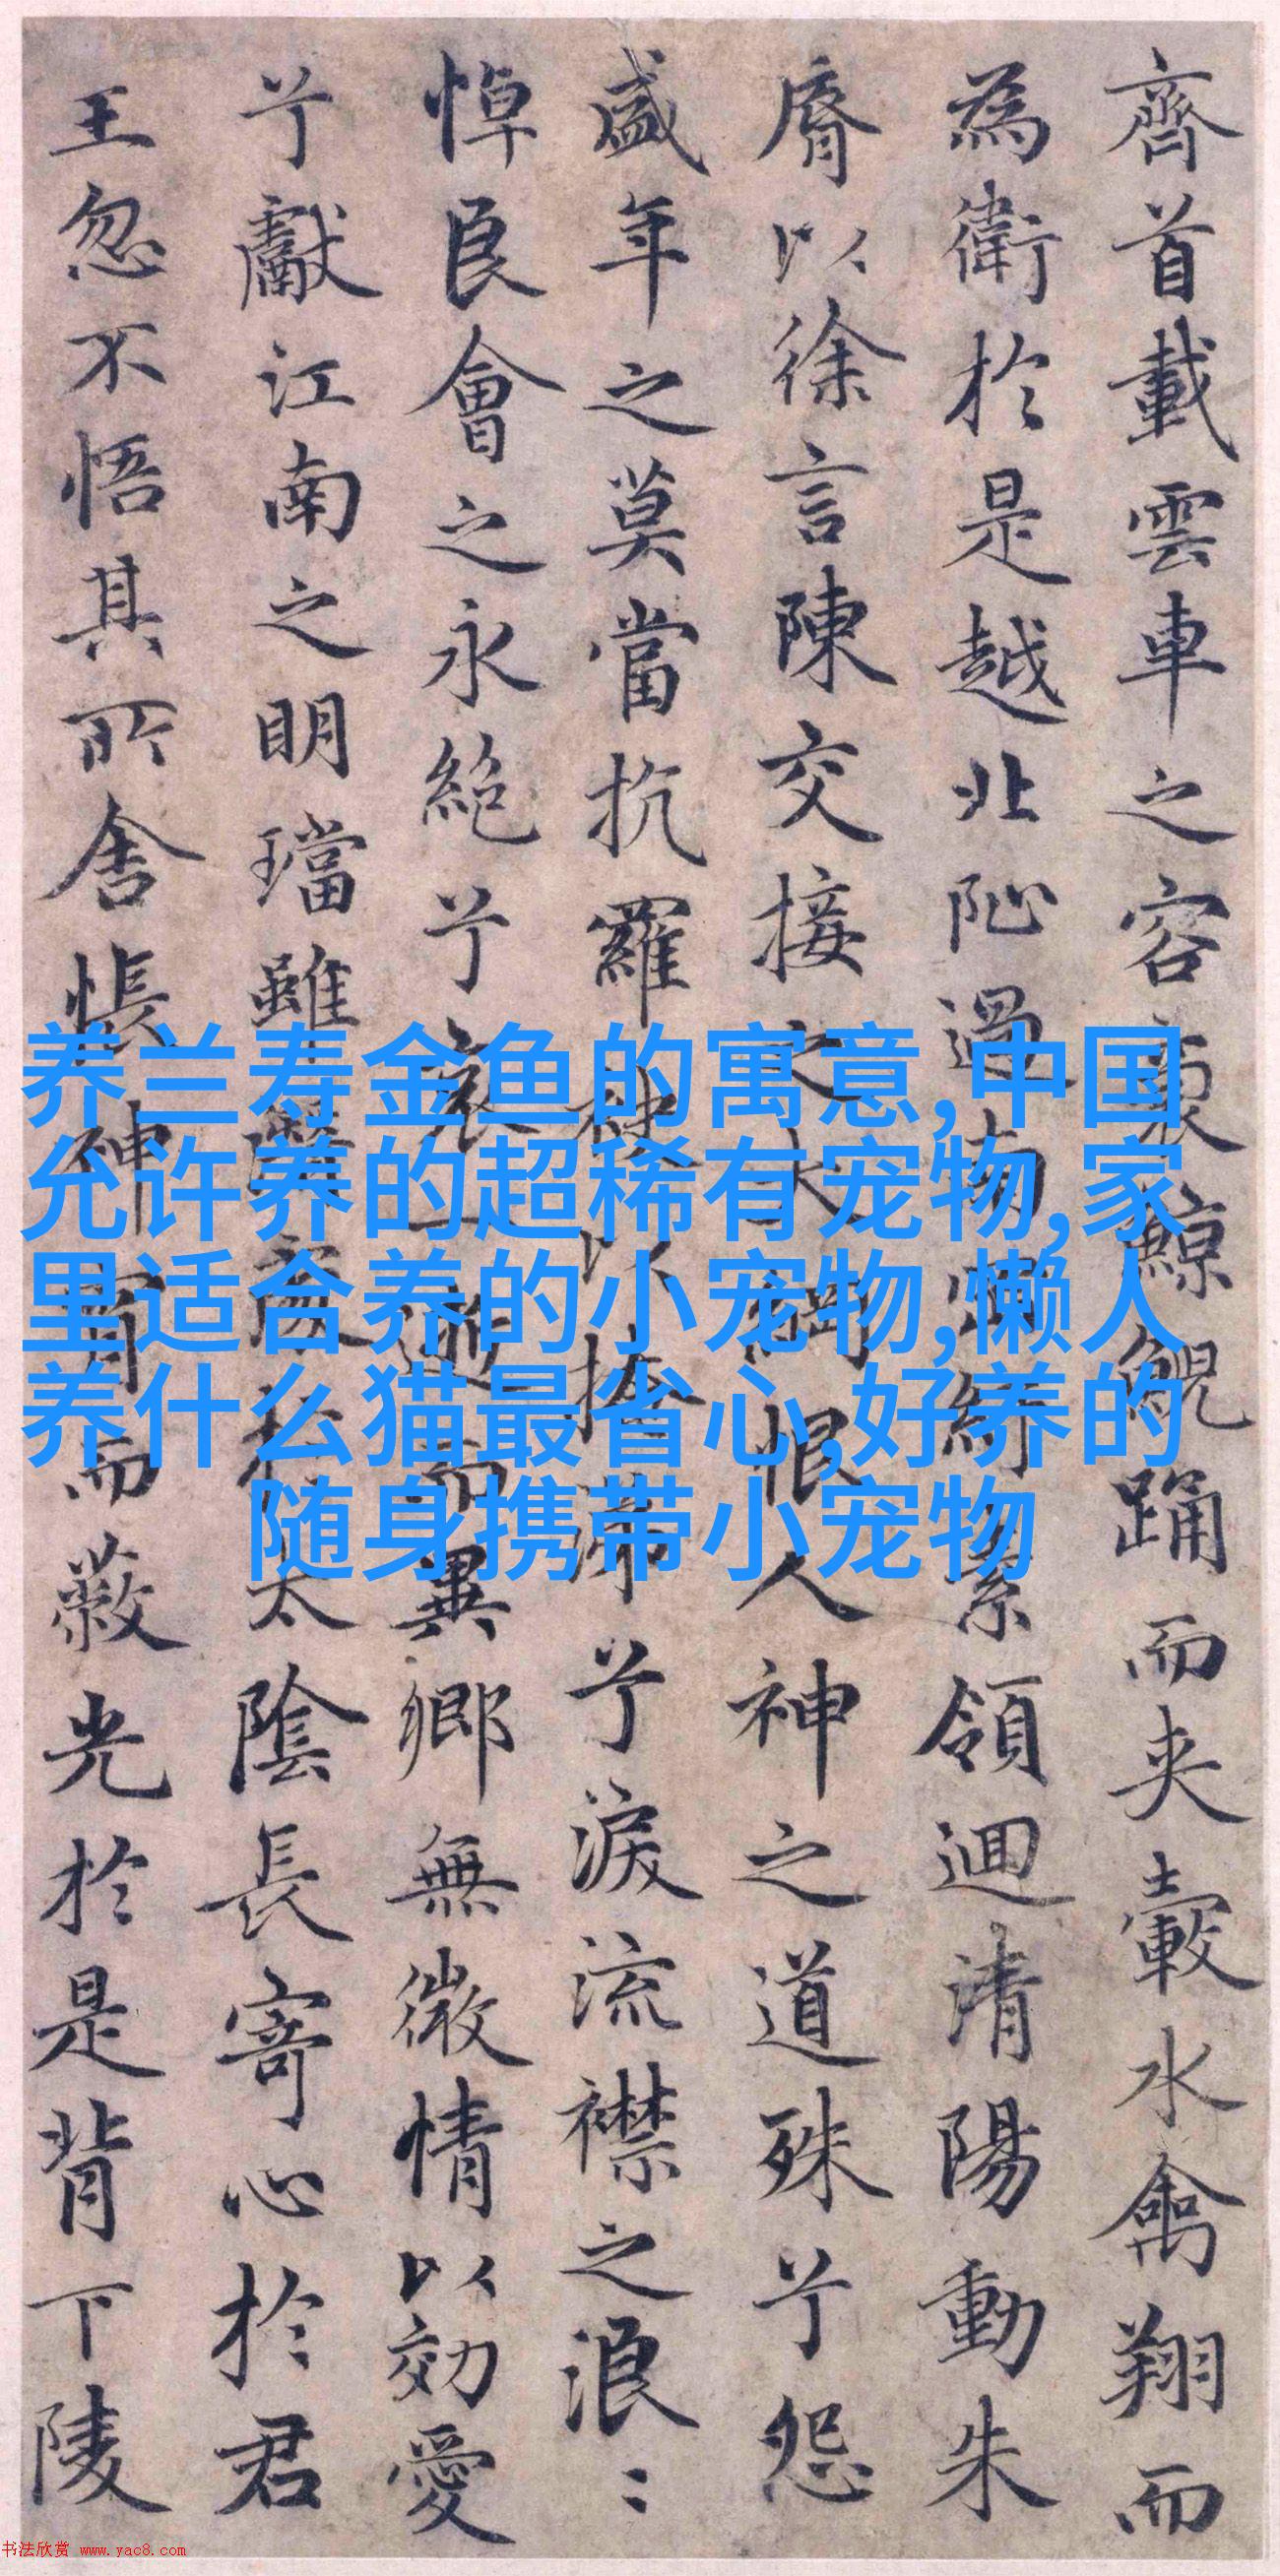 齊首載雲車之容裔鯨鯢踊而夾轂水禽翔而
為衛於是越北阯過南岡紆素領迴清陽動朱
脣以徐言陳交接之大綱恨人神之道殊兮怨
盛年之莫當抗羅袂以掩涕兮淚流襟之浪〻
悼良會之永絕兮哀一逝而異鄉無微情以効愛
兮獻江南之明璫雖潛處於太陰長寄心於君
王忽不悟其所舍悵神宵而蔽光於是背下陵
养兰寿金鱼的寓意,中国
允许养的超稀有宠物,家
里适合养的小宠物,懒人
养什么猫最省心,好养的
随身携带小宠物
书法欣赏 www.yac8.com